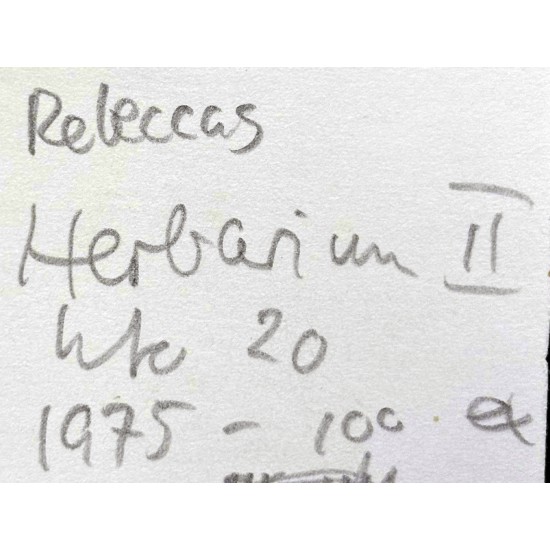 Rebeccas
Herbarium II
20
1975 - 100 ex